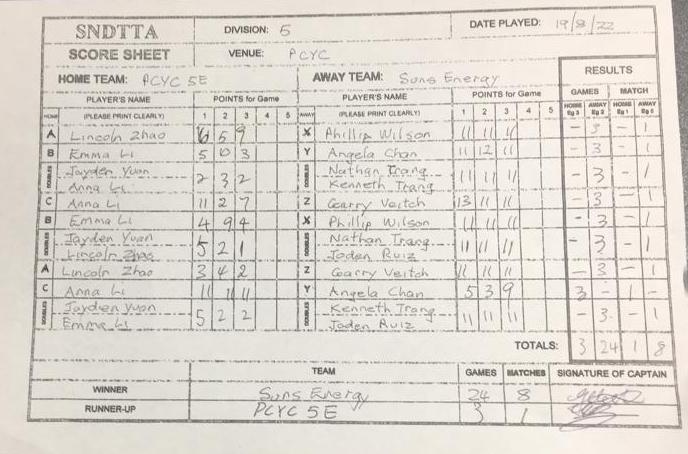 SNDTTA DIVISION: 5 DATE PLAYED: 19/8/22
SCORE SHEET VENUE: PCYC
HOME TEAM: PCYC 5E AWAY TEAM: Suns Energy RESULTS
PLAYER'S NAME POINTS for Game PLAYER'S NAME POINTS for Game GAMES MATCH
HOME (PLEASE PRINT CLEARLY) 1 2 3 4 5 AWAY (PLEASE PRINT CLEARLY) 1 2 3 4 5 HOME Eg 3 AWAY Eg 2 HOME Eg 1 AWAY Eg 0
A Lincoln Zhao 6 5 9 X Phillip Wilson 11 11 11 - 3 - 1
B Emma Li 5 10 3 Y Angela Chan 11 12 11 - 3 - 1
DOUBLES Jayden Yuan Anna Li 2 3 2 DOUBLES Nathan Trang Kenneth Trang 11 11 11 - 3 - 1
C Anna Li 11 2 7 Z Gearry Veitch 13 11 11 - 3 - 1
B Emma Li 4 9 4 X Phillip Wilson 11 11 11 - 3 - 1
DOUBLES Jayden Yuan Lincoln Zhao 5 2 1 DOUBLES Nathan Trang Jaden Ruiz 11 11 11 - 3 - 1
A Lincoln Zhao 3 4 2 Z Gearry Veitch 11 11 11 - 3 - 1
C Anna Li 11 11 11 Y Angela Chan 5 3 9 3 - 1 -
DOUBLES Jayden Yuan Emma Li 5 2 2 DOUBLES Kenneth Trang Jaden Ruiz 11 11 11 - 3 - 1
TOTALS: 3 24 1 8
TEAM GAMES MATCHES SIGNATURE OF CAPTAIN
WINNER Suns Energy 24 8
RUNNER-UP PCYC 5E 3 1